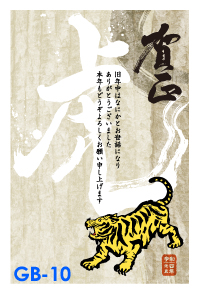 賀正
虎
旧年中はなにかとお世話になり
ありがとうございました
本年もどうぞよろしくお願い申し上げます
GB-10